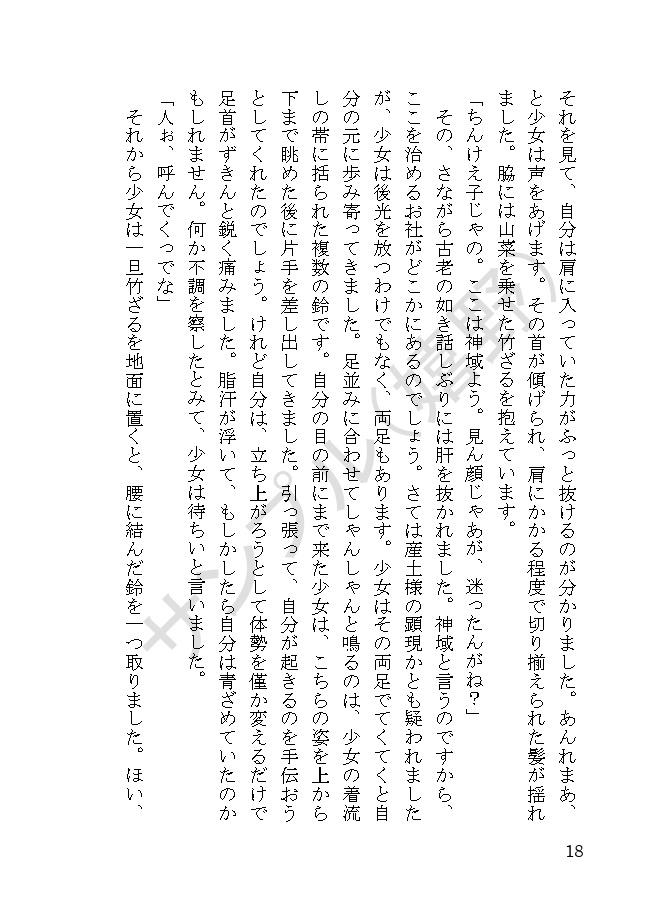 それを見て、自分は肩に入っていた力がふっと抜けるのが分かりました。あんれまあ、
と少女は声をあげます。その首が傾げられ、肩にかかる程度で切り揃えられた髪が揺れ
ました。脇には山菜を乗せた竹ざるを抱えています。
「ちんけえ子じゃの。ここは神域よう。見ん顔じゃあが、迷ったんがね？」
その、さながら古老の如き話しぶりには肝を抜かれました。神域と言うのですから、
ここを治めるお社がどこかにあるのでしょう。さては産土様の顕現かとも疑われました
が、少女は後光を放つわけでもなく、両足もあります。少女はその両足でてくてくと自
分の元に歩み寄ってきました。足並みに合わせてしゃんしゃんと鳴るのは、少女の着流
しの帯に括られた複数の鈴です。自分の目の前にまで来た少女は、こちらの姿を上から
下まで眺めた後に片手を差し出してきました。引っ張って、自分が起きるのを手伝おう
としてくれたのでしょう。けれど自分は、立ち上がろうとして体勢を僅か変えるだけで
足首がずきんと鋭く痛みました。脂汗が浮いて、もしかしたら自分は青ざめていたのか
もしれません。何か不調を察したとみて、少女は待ちいと言いました。
「人ぉ、呼んでくっでな」
それから少女は一旦竹ざるを地面に置くと、腰に結んだ鈴を一つ取りました。ほい、
サンプル（嬉野）
18